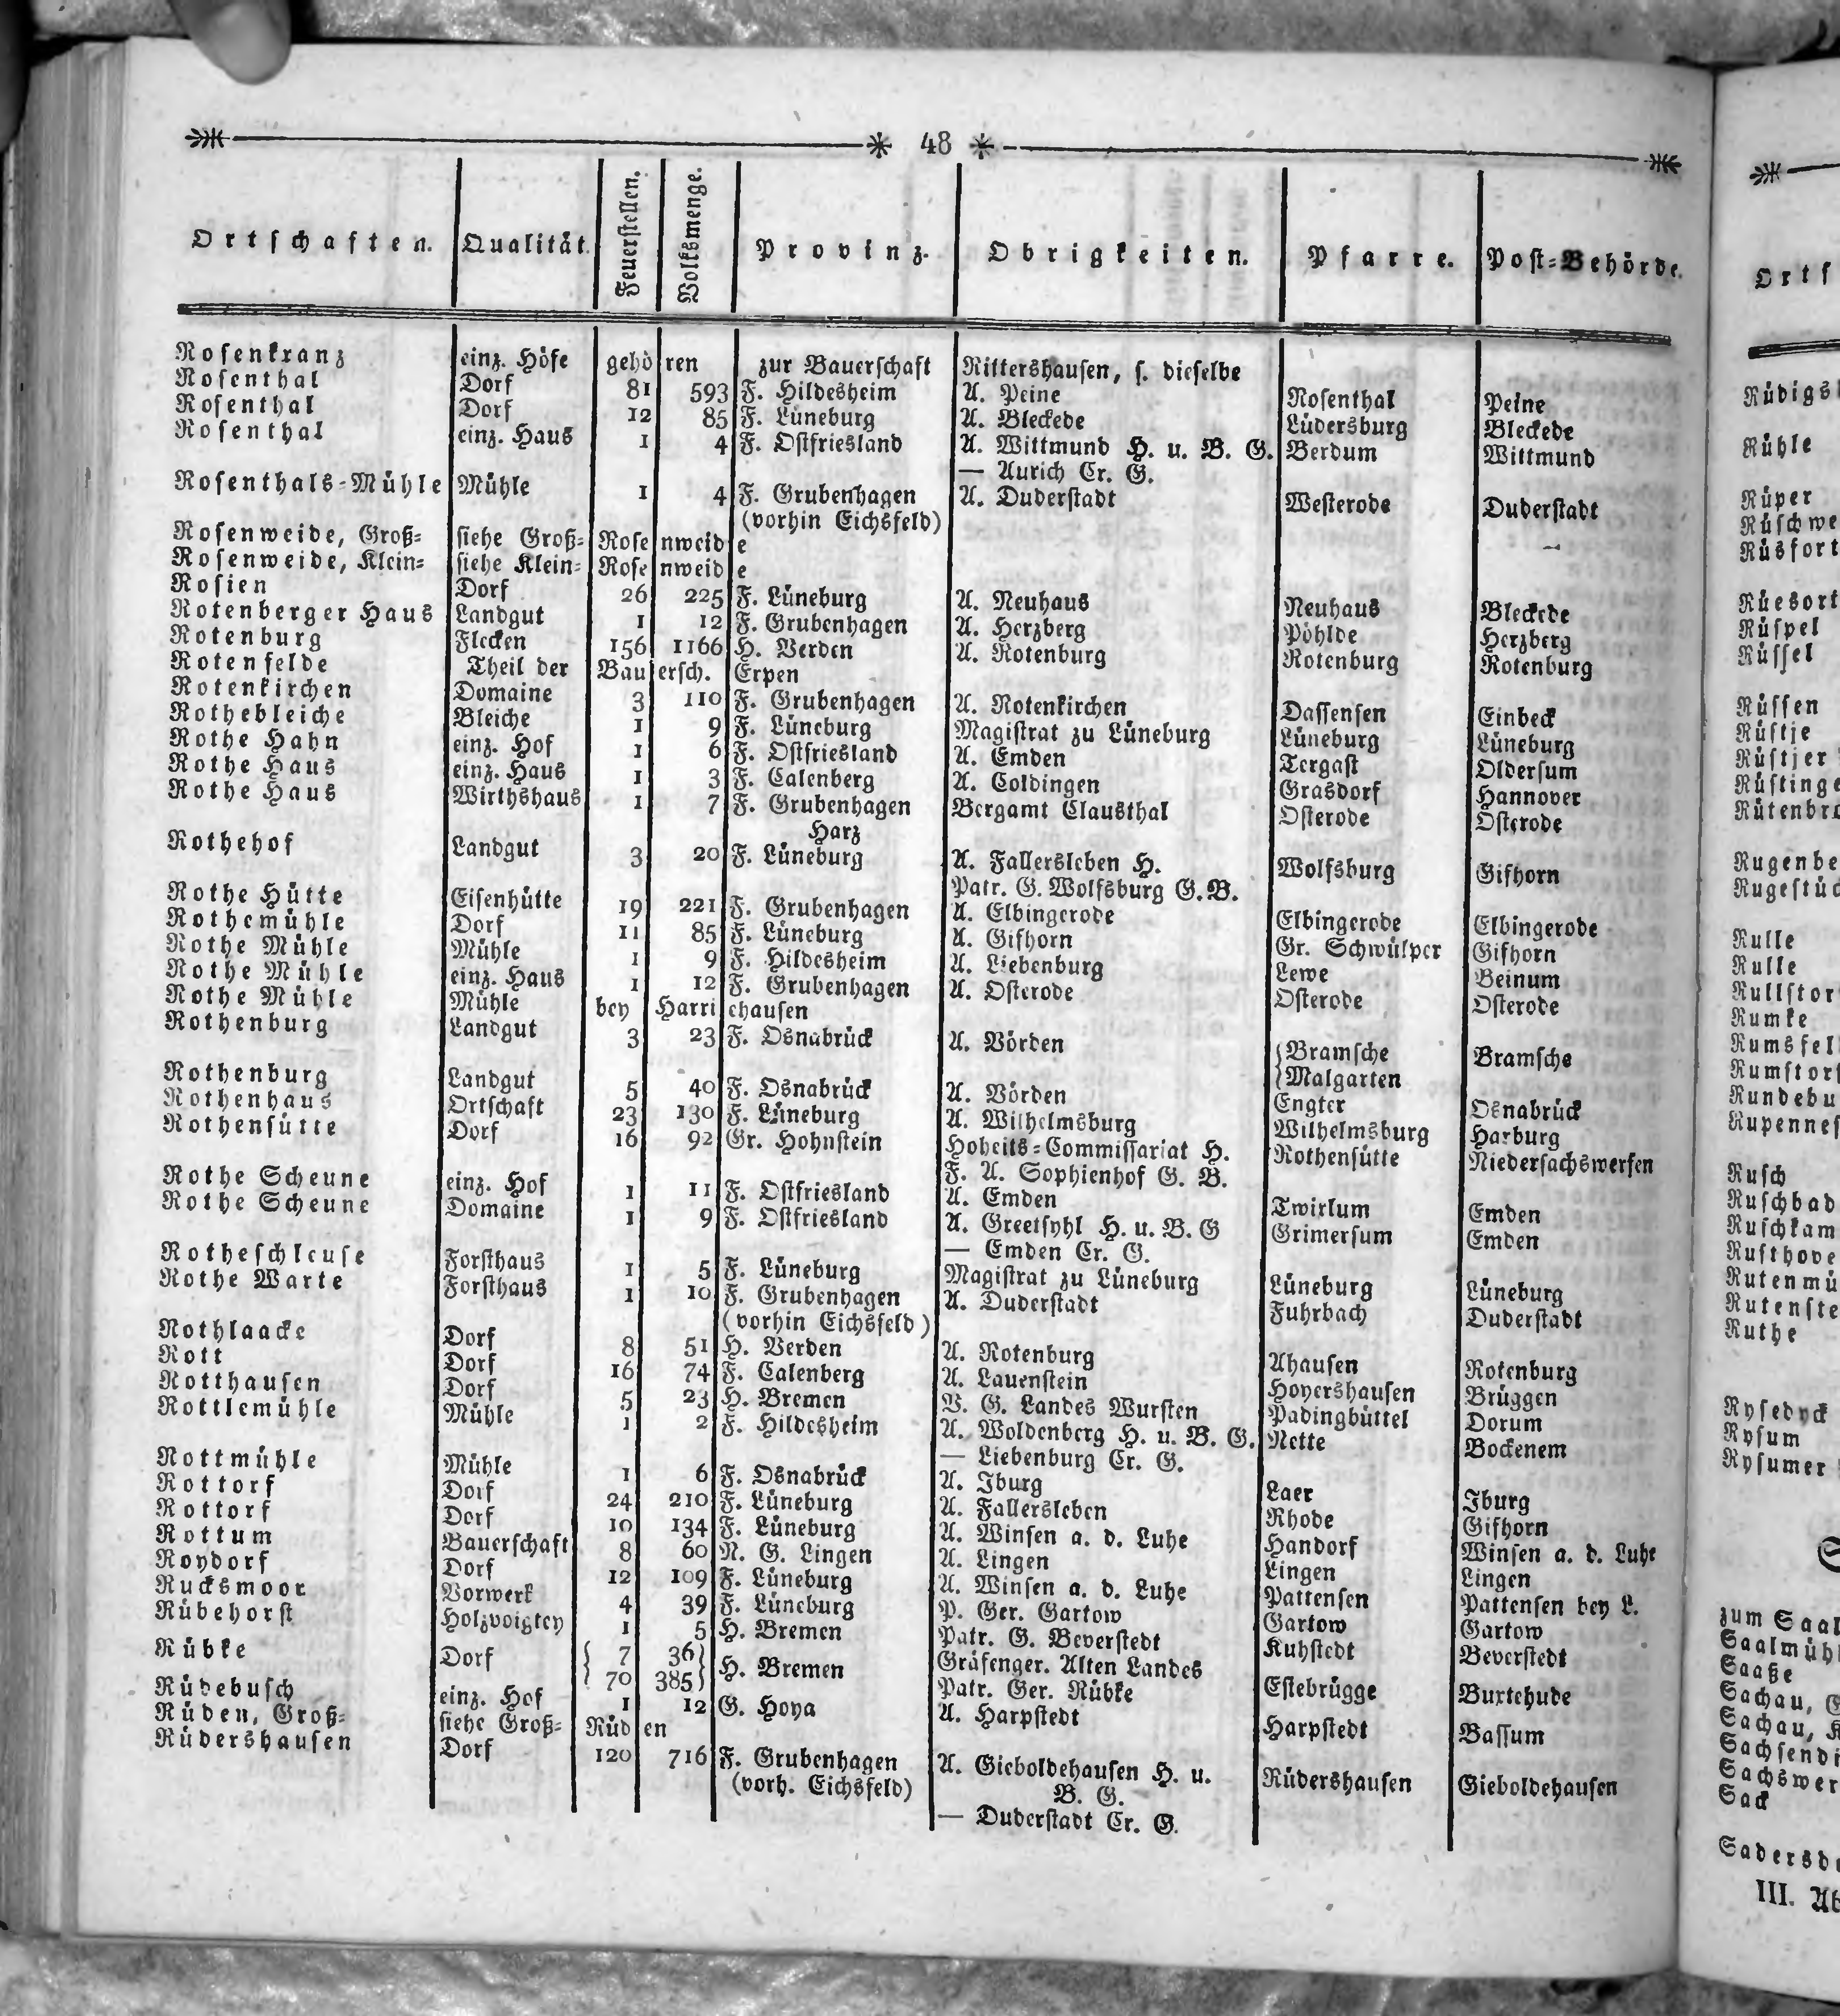 48
Ortschaften. Qualität. Feuerstellen. Volksmenge. Provinz. Obrigkeiten. Pfarre. Post-Behörde.
Rosenkranz einz. Höfe gehören zur Bauerschaft Rittershausen, s. dieselbe
Rosenthal Dorf 81 593 F. Hildesheim A. Peine Rosenthal Peine
Rosenthal Dorf 12 85 F. Lüneburg A. Bleckede Lüdersburg Bleckede
Rosenthal einz. Haus 1 4 F. Ostfriesland A. Wittmund H. u. B. G. Berdum Wittmund
— Aurich Cr. G.
Rosenthals-Mühle Mühle 1 4 F. Grubenhagen A. Duderstadt Westerode Duderstadt
(vorhin Eichsfeld)
Rosenweide, Groß- siehe Groß-Rosenweide
Rosenweide, Klein- siehe Klein-Rosenweide
Rosien Dorf 26 225 F. Lüneburg A. Neuhaus Neuhaus Bleckede
Rotenberger Haus Landgut 1 12 F. Grubenhagen A. Herzberg Pöhlde Herzberg
Rotenburg Flecken 156 1166 H. Verden A. Rotenburg Rotenburg Rotenburg
Rotenfelde Theil der Bauersch. Erpen
Rotenkirchen Domaine 3 110 F. Grubenhagen A. Rotenkirchen Dassensen Einbeck
Rothebleiche Bleiche 1 9 F. Lüneburg Magistrat zu Lüneburg Lüneburg Lüneburg
Rothe Hahn einz. Hof 1 6 F. Ostfriesland A. Emden Tergast Oldersum
Rothe Haus einz. Haus 1 3 F. Calenberg A. Coldingen Grasdorf Hannover
Rothe Haus Wirthshaus 1 7 F. Grubenhagen Bergamt Clausthal Osterode Osterode
Harz
Rothehof Landgut 3 20 F. Lüneburg A. Fallersleben H. Wolfsburg Gifhorn
Patr. G. Wolfsburg G. B.
Rothe Hütte Eisenhütte 19 221 F. Grubenhagen A. Elbingerode Elbingerode Elbingerode
Rothemühle Dorf 11 85 F. Lüneburg A. Gifhorn Gr. Schwülper Gifhorn
Rothe Mühle Mühle 1 9 F. Hildesheim A. Liebenburg Lewe Beinum
Rothe Mühle einz. Haus 1 12 F. Grubenhagen A. Osterode Osterode Osterode
Rothe Mühle Mühle bey Harriehausen
Rothenburg Landgut 3 23 F. Osnabrück A. Vörden {Bramsche Bramsche
{Malgarten
Rothenburg Landgut 5 40 F. Osnabrück A. Vörden Engter Osnabrück
Rothenhaus Ortschaft 23 130 F. Lüneburg A. Wilhelmsburg Wilhelmsburg Harburg
Rothensütte Dorf 16 92 Gr. Hohnstein Hoheits-Commissariat H. Rothensütte Niedersachswerfen
F. A. Sophienhof G. B.
Rothe Scheune einz. Hof 1 11 F. Ostfriesland A. Emden Twixlum Emden
Rothe Scheune Domaine 1 9 F. Ostfriesland A. Greetsyhl H. u. B. G Grimersum Emden
— Emden Cr. G.
Rotheschleuse Forsthaus 1 5 F. Lüneburg Magistrat zu Lüneburg Lüneburg Lüneburg
Rothe Warte Forsthaus 1 10 F. Grubenhagen A. Duderstadt Fuhrbach Duderstadt
(vorhin Eichsfeld)
Rothlaacke Dorf 8 51 H. Verden A. Rotenburg Ahausen Rotenburg
Rott Dorf 16 74 F. Calenberg A. Lauenstein Hoyershausen Brüggen
Rotthausen Dorf 5 23 H. Bremen V. G. Landes Wursten Padingbüttel Dorum
Rottlemühle Mühle 1 2 F. Hildesheim A. Woldenberg H. u. B. G. Nette Bockenem
— Liebenburg Cr. G.
Rottmühle Mühle 1 6 F. Osnabrück A. Iburg Laer Iburg
Rottorf Dorf 24 210 F. Lüneburg A. Fallersleben Rhode Gifhorn
Rottorf Dorf 10 134 F. Lüneburg A. Winsen a. d. Luhe Handorf Winsen a. d. Luhe
Rottum Bauerschaft 8 60 N. G. Lingen A. Lingen Lingen Lingen
Roydorf Dorf 12 109 F. Lüneburg A. Winsen a. d. Luhe Pattensen Pattensen bey L.
Rucksmoor Vorwerk 4 39 F. Lüneburg P. Ger. Gartow Gartow Gartow
Rübehorst Holzvoigtey 1 5 H. Bremen Patr. G. Beverstedt Kuhstedt Beverstedt
Rübke Dorf {7 36} H. Bremen Gräfenger. Alten Landes Estebrügge Buxtehude
{70 385} Patr. Ger. Rübke
Rüdebusch einz. Hof 1 12 G. Hoya A. Harpstedt Harpstedt Bassum
Rüden, Groß- siehe Groß-Rüden
Rüdershausen Dorf 120 716 F. Grubenhagen A. Gieboldehausen H. u. Rüdershausen Gieboldehausen
(vorh. Eichsfeld) B. G.
— Duderstadt Cr. G.
Orts
Rüdigs
Rühle
Rüper
Rüschwe
Rüsfort
Rüesort
Rüspel
Rüssel
Rüssen
Rüstje
Rüstjer
Rüstinge
Rütenbro
Rugenbe
Rugestüc
Rulle
Rulle
Rullstor
Rumke
Rumsfel
Rumstorf
Rundebu
Rupennes
Rusch
Ruschbad
Ruschkam
Rusthove
Rutenmü
Rutenste
Ruthe
Rysedyck
Rysum
Rysumer
S
zum Saal
Saalmühl
Saaße
Sachau, G
Sachau, K
Sachsendi
Sachswer
Sack
Sadersdo
III. Ab